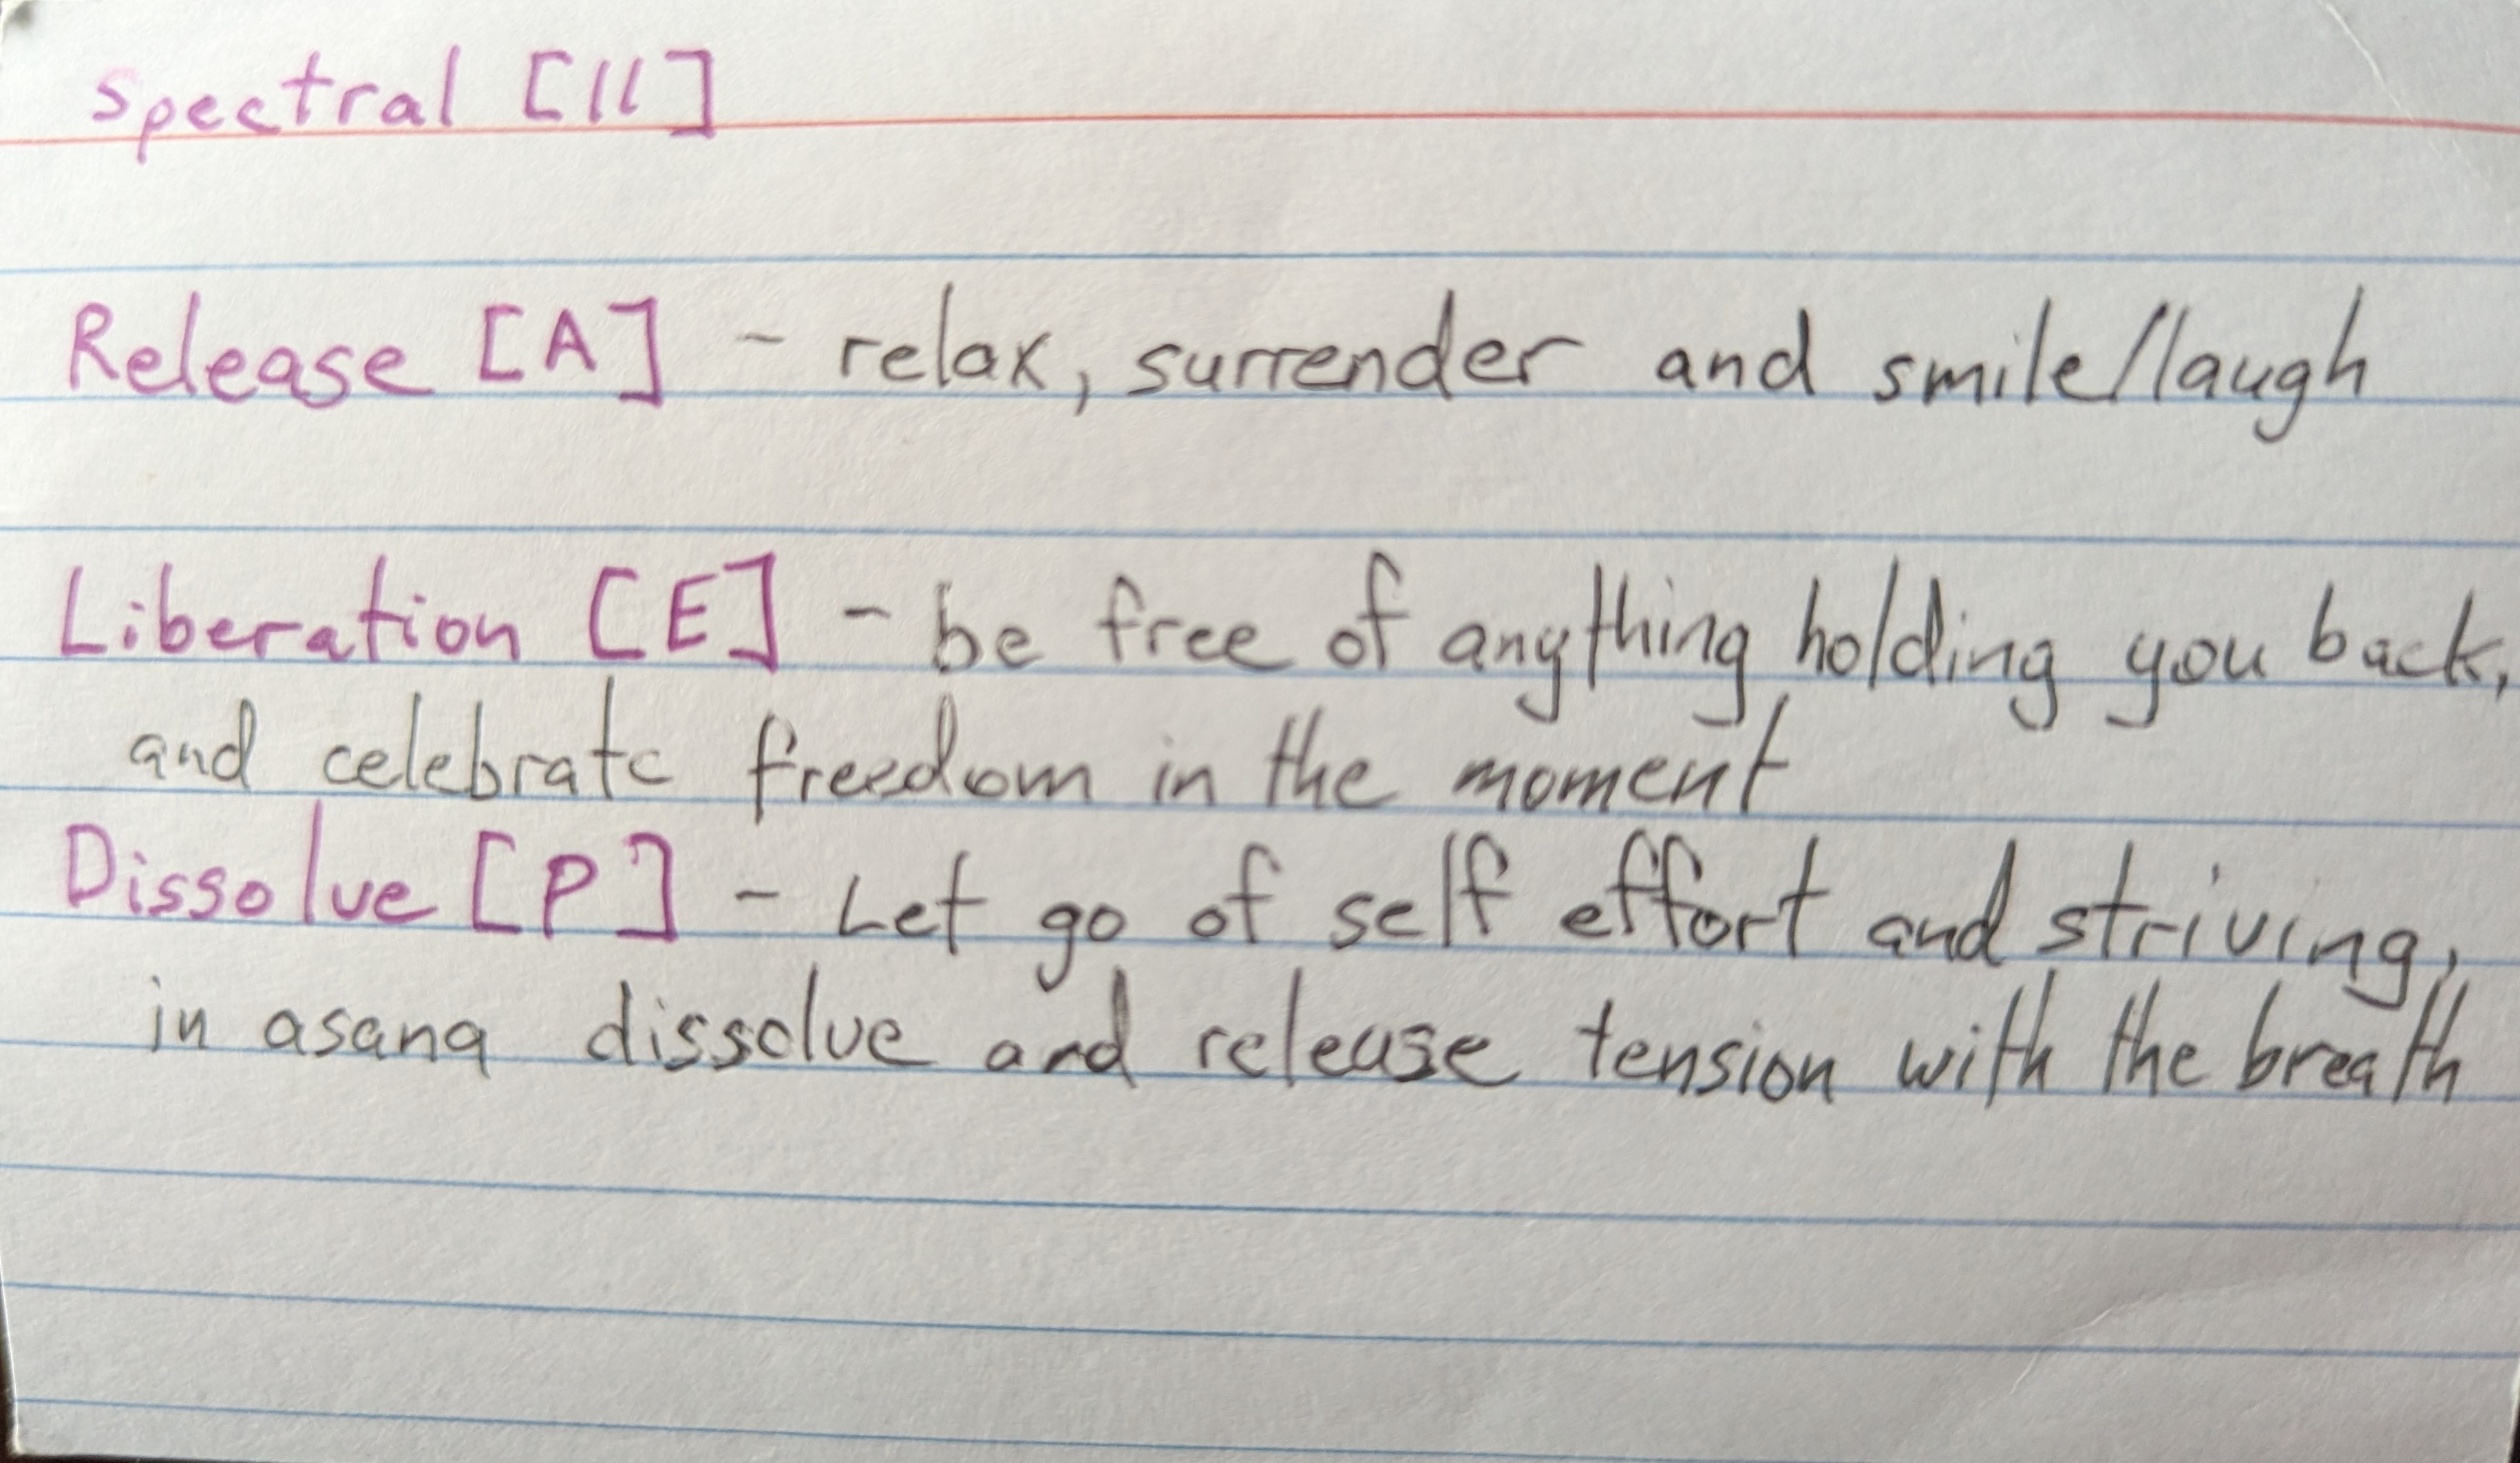 Spectral [11]
Release [A] - relax, surrender and smile/laugh
Liberation [E] - be free of anything holding you back,
and celebrate freedom in the moment
Dissolve [P] - Let go of self effort and striving,
in asana dissolve and release tension with the breath